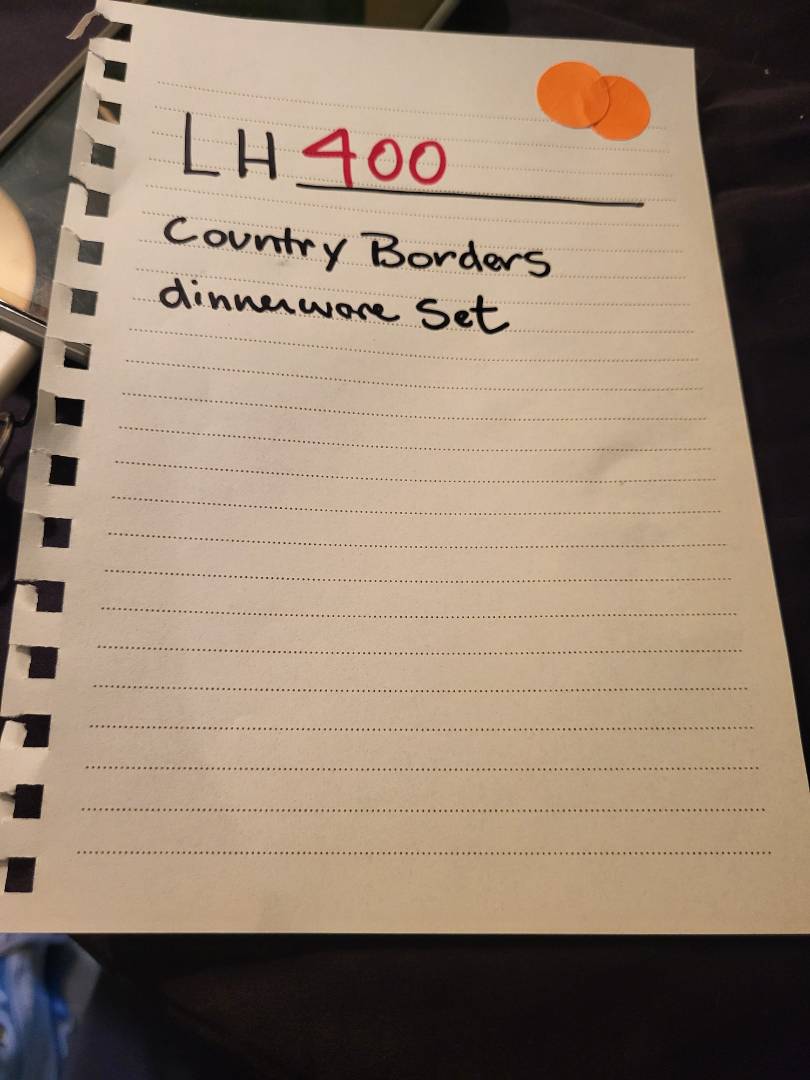 LH 400
Country Borders
dinnerware Set